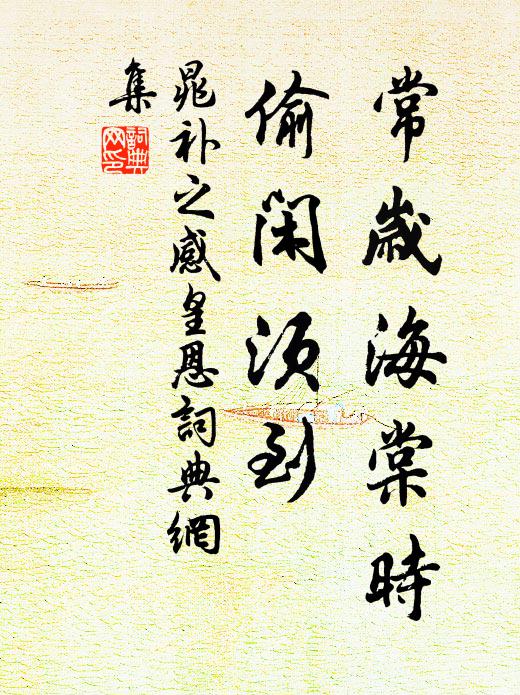 常歲海棠時
偷閑須到
晁補之感皇恩詞典網
集
詞典網印